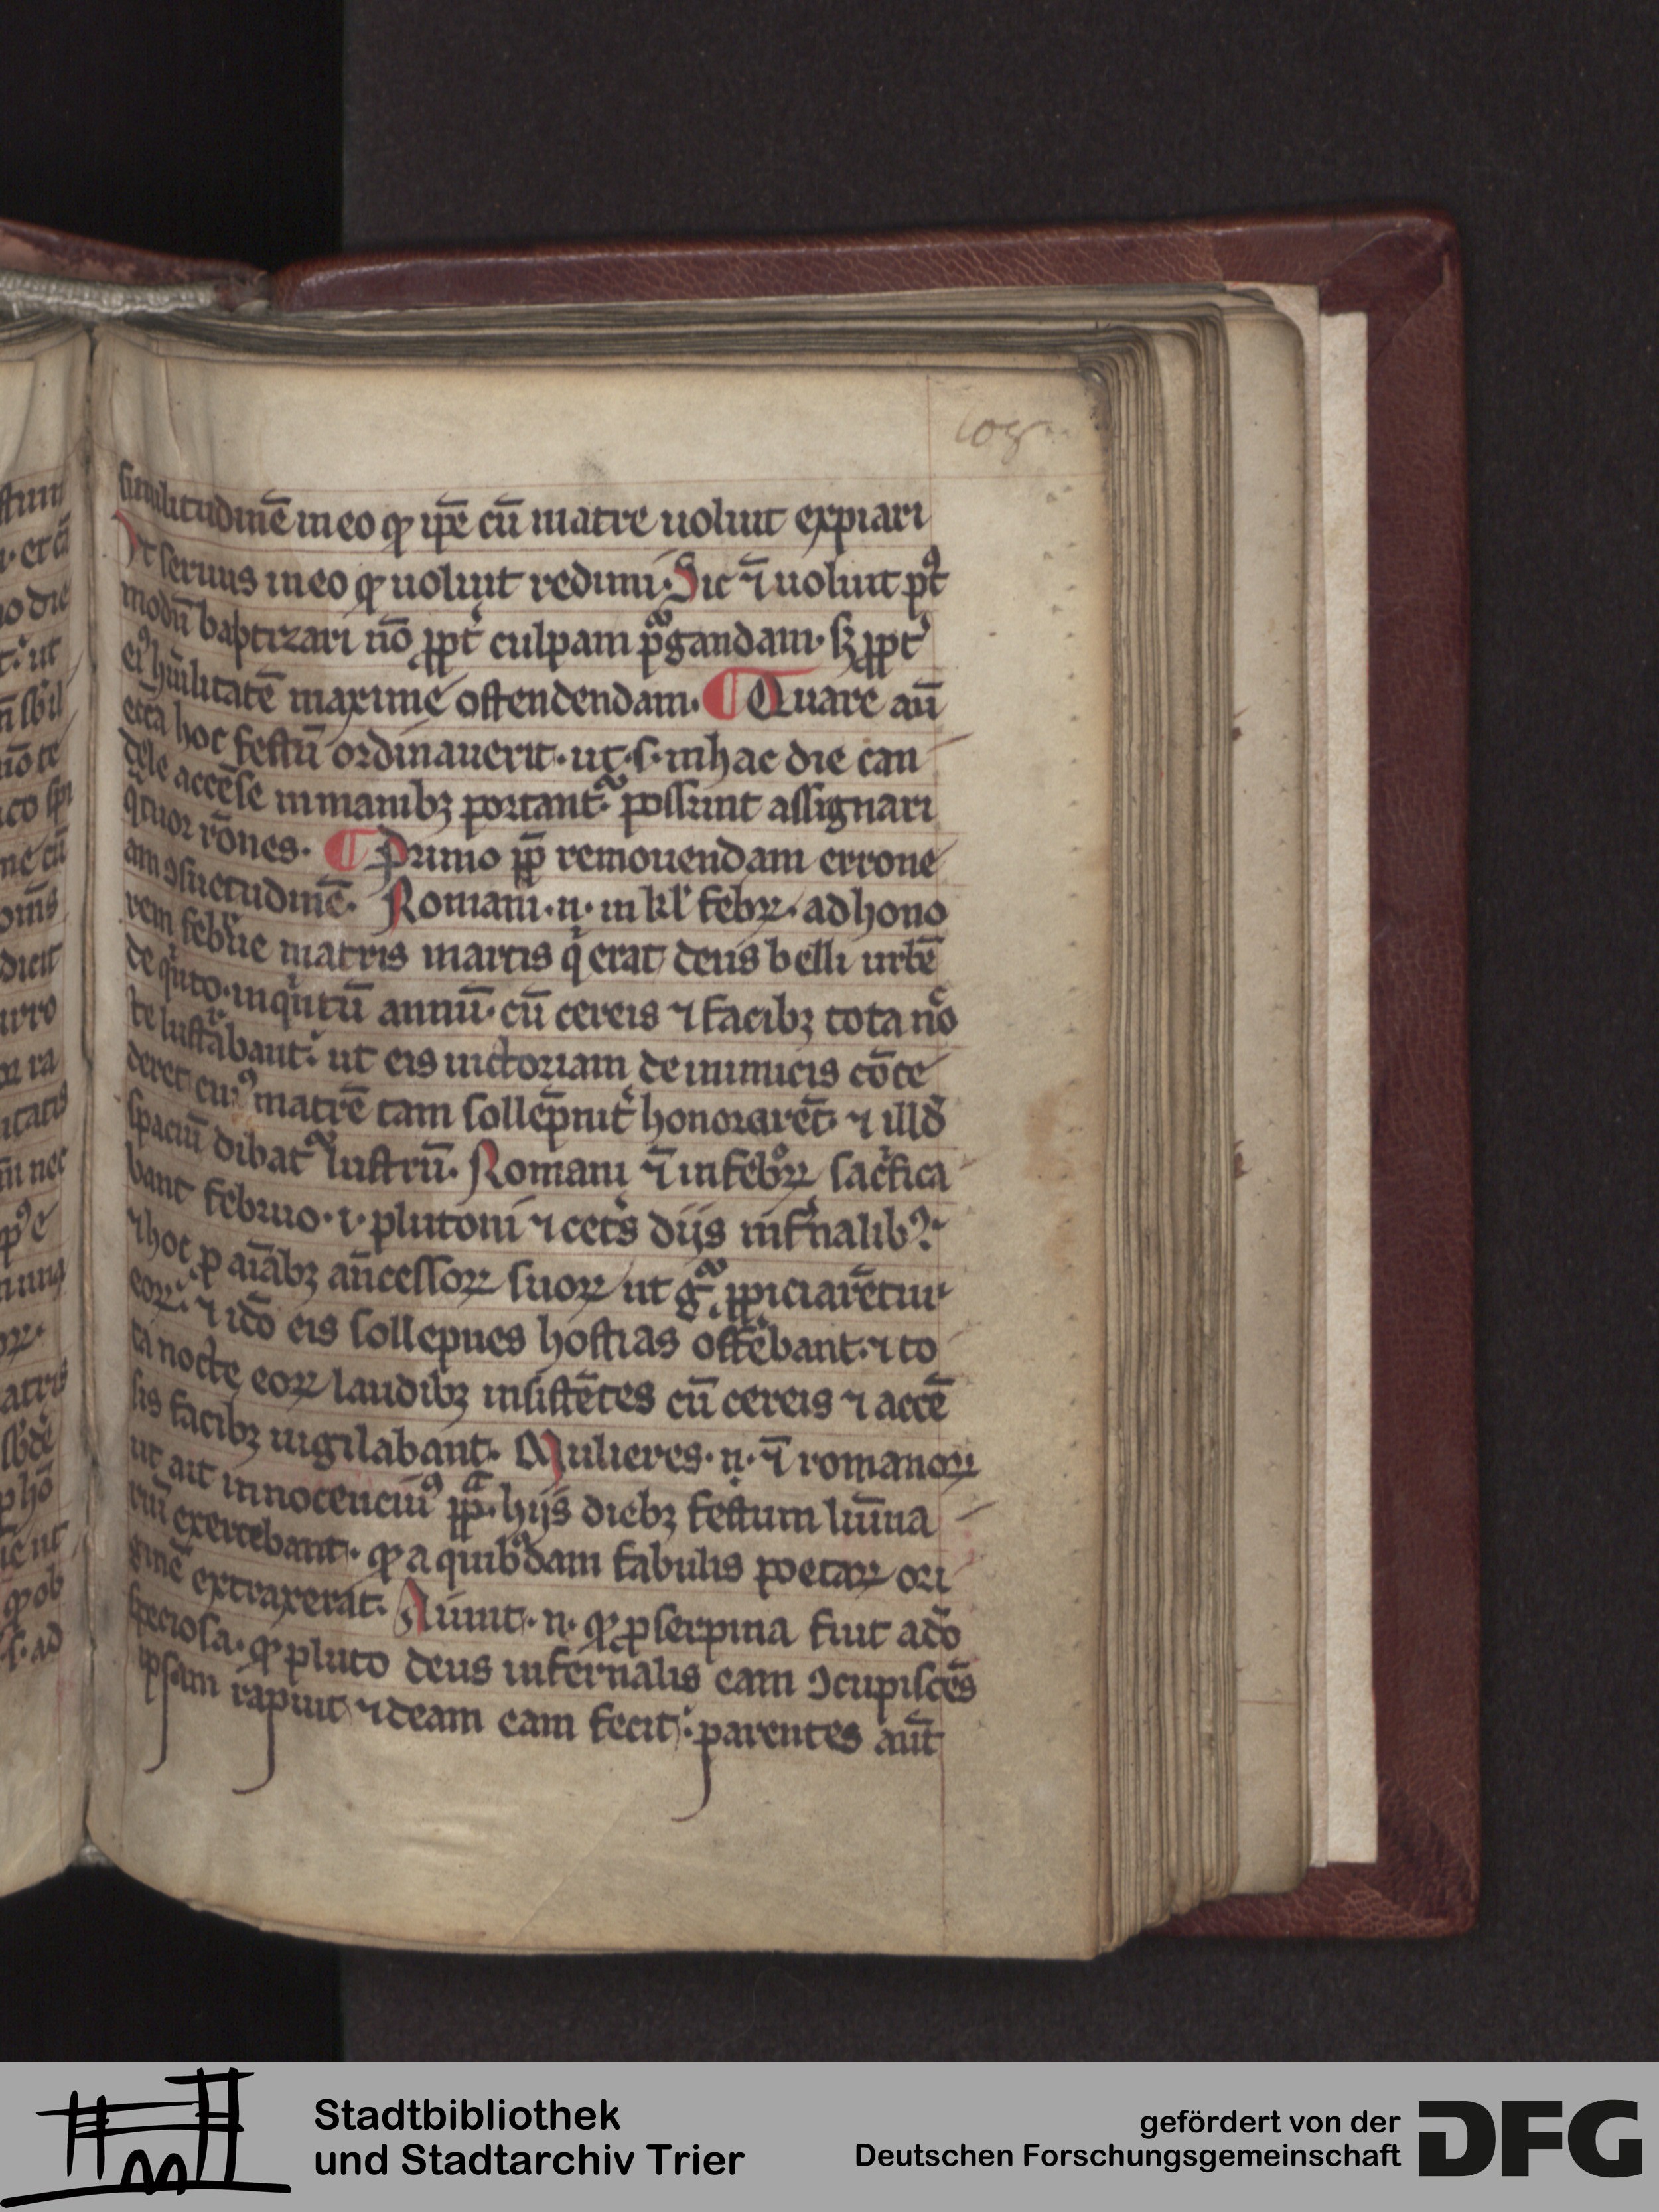 108
similitudinē in eo ꝙ ip̄e cū matre uoluit expiari
Ut seruus in eo ꝙ uoluit redimi. Sic ⁊̄ uoluit pꝰt
modū baptizari nō ꝓpt̉ culpam pᵃgandam. sꝫ ꝓpt̉
eiꝰ hūilitatē maxime ostendendam. ¶ Quare aū
eccā hoc festū ordinauerit. ut .s. in hac die can
dele accēse in manibꝫ portantᷓ possunt assignari
qᷓtuor rōnes. ¶ Primo ꝓp̄ remouendam errone
am ꝯsuetudinē. Romani .n. in kl' febꝝ. ad hono
rem febr̉ue matris martis q̇ erat deus belli urbē
de qͥnto. in qͥntū annū. cū cereis ⁊ facibꝫ tota noͨ
te lustᷓbant. ut eis uictoriam de inimicis cōce
deret cuiꝰ matrē tam sollēpnit̉ honorarēt. ⁊ illd̉
spaciū dibatᷓ lustrū. Romani ⁊̄ in febꝝ sacͥfica
bant februo .i. plutoni ⁊ cet̉s dijs inf̉nalibꝰ.
⁊ hoc ꝓ aīabꝫ an̄cessoꝝ suoꝝ ut gᷓ ꝓpiciarētur
eoꝝ. ⁊ iō eis sollepnes hostias offēbant. ⁊ to
ta nocte eoꝝ laudibꝫ insistētes cū cereis ⁊ accē
sis facibꝫ uigilabant. Mulieres .n. ⁊̄ romanoꝝ
ut ait innocenciꝰ ꝓpᵃ. hijs diebꝫ festum lūina
riū exercebant. ꝙ a quibᷓdam fabulis poetaꝝ ori
ginē extraxerat. Aiunt .n. ꝙ ꝓserpina fuit adō
speciosa. ꝙ pluto deus infernalis eam ꝯcupiscēs
ipsam rapuit ⁊ deam eam fecit. parentes aūt
Stadtbibliothek
und Stadtarchiv Trier
gefördert von der
Deutschen Forschungsgemeinschaft
DFG